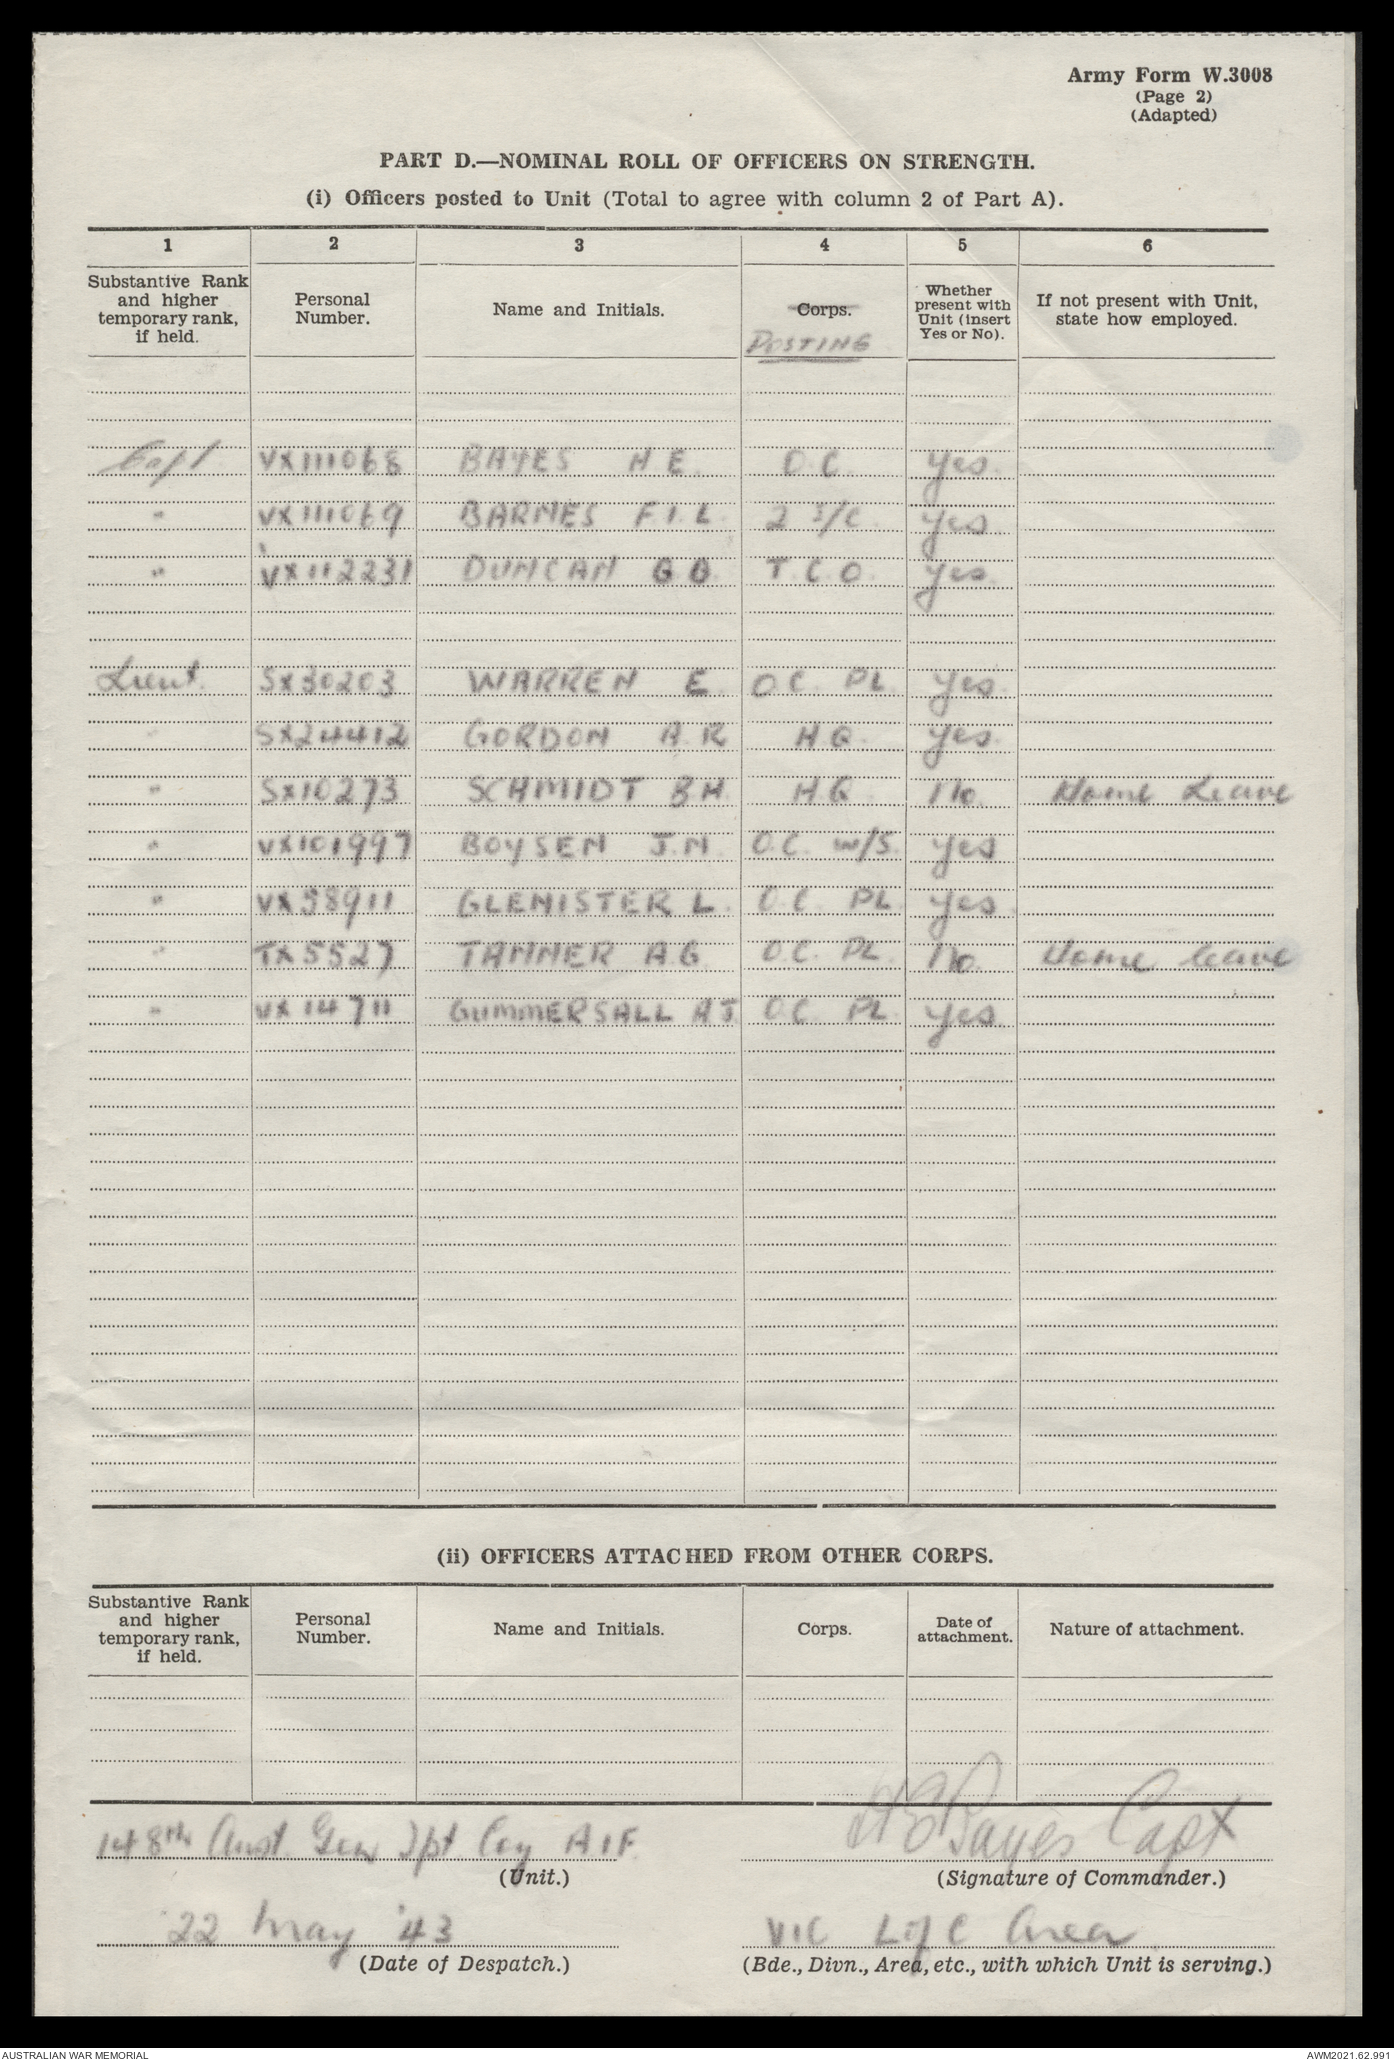 Army Form W.3008
(Page 2)
(Adapted)
PART D.—NOMINAL ROLL OF OFFICERS ON STRENGTH.
(i) Officers posted to Unit (Total to agree with column 2 of Part A).
1 2 3 4 5 6
Substantive Rank and higher temporary rank, if held. Personal Number. Name and Initials. Corps. POSTING Whether present with Unit (insert Yes or No). If not present with Unit, state how employed.
Capt VX111068 BAYES H.E. O.C. Yes
" VX111069 BARNES F.I.L. 2 I/C. Yes
" VX112231 DUNCAN G.G. T.C.O. Yes.
Lieut. SX30203 WARREN E. O.C. PL. Yes.
" SX24412 GORDON A.R H.Q. Yes.
" SX10273 SCHMIDT B.H. H.Q. No. Home Leave
" VX101997 BOYSEN J.N. O.C. W/S. Yes
" VX58911 GLENISTER L. O.C. PL. Yes
" TX5527 TANNER A.G. O.C. PL. No. Home leave
" VX14711 GUMMERSALL A.J. O.C. PL. Yes
(ii) OFFICERS ATTACHED FROM OTHER CORPS.
Substantive Rank and higher temporary rank, if held. Personal Number. Name and Initials. Corps. Date of attachment. Nature of attachment.
148th Aust. Gen Tpt Coy A.I.F. HE Bayes Capt
(Unit.) (Signature of Commander.)
22 May '43 VIC L of C Area
(Date of Despatch.) (Bde., Divn., Area, etc., with which Unit is serving.)
AUSTRALIAN WAR MEMORIAL AWM2021.62.991